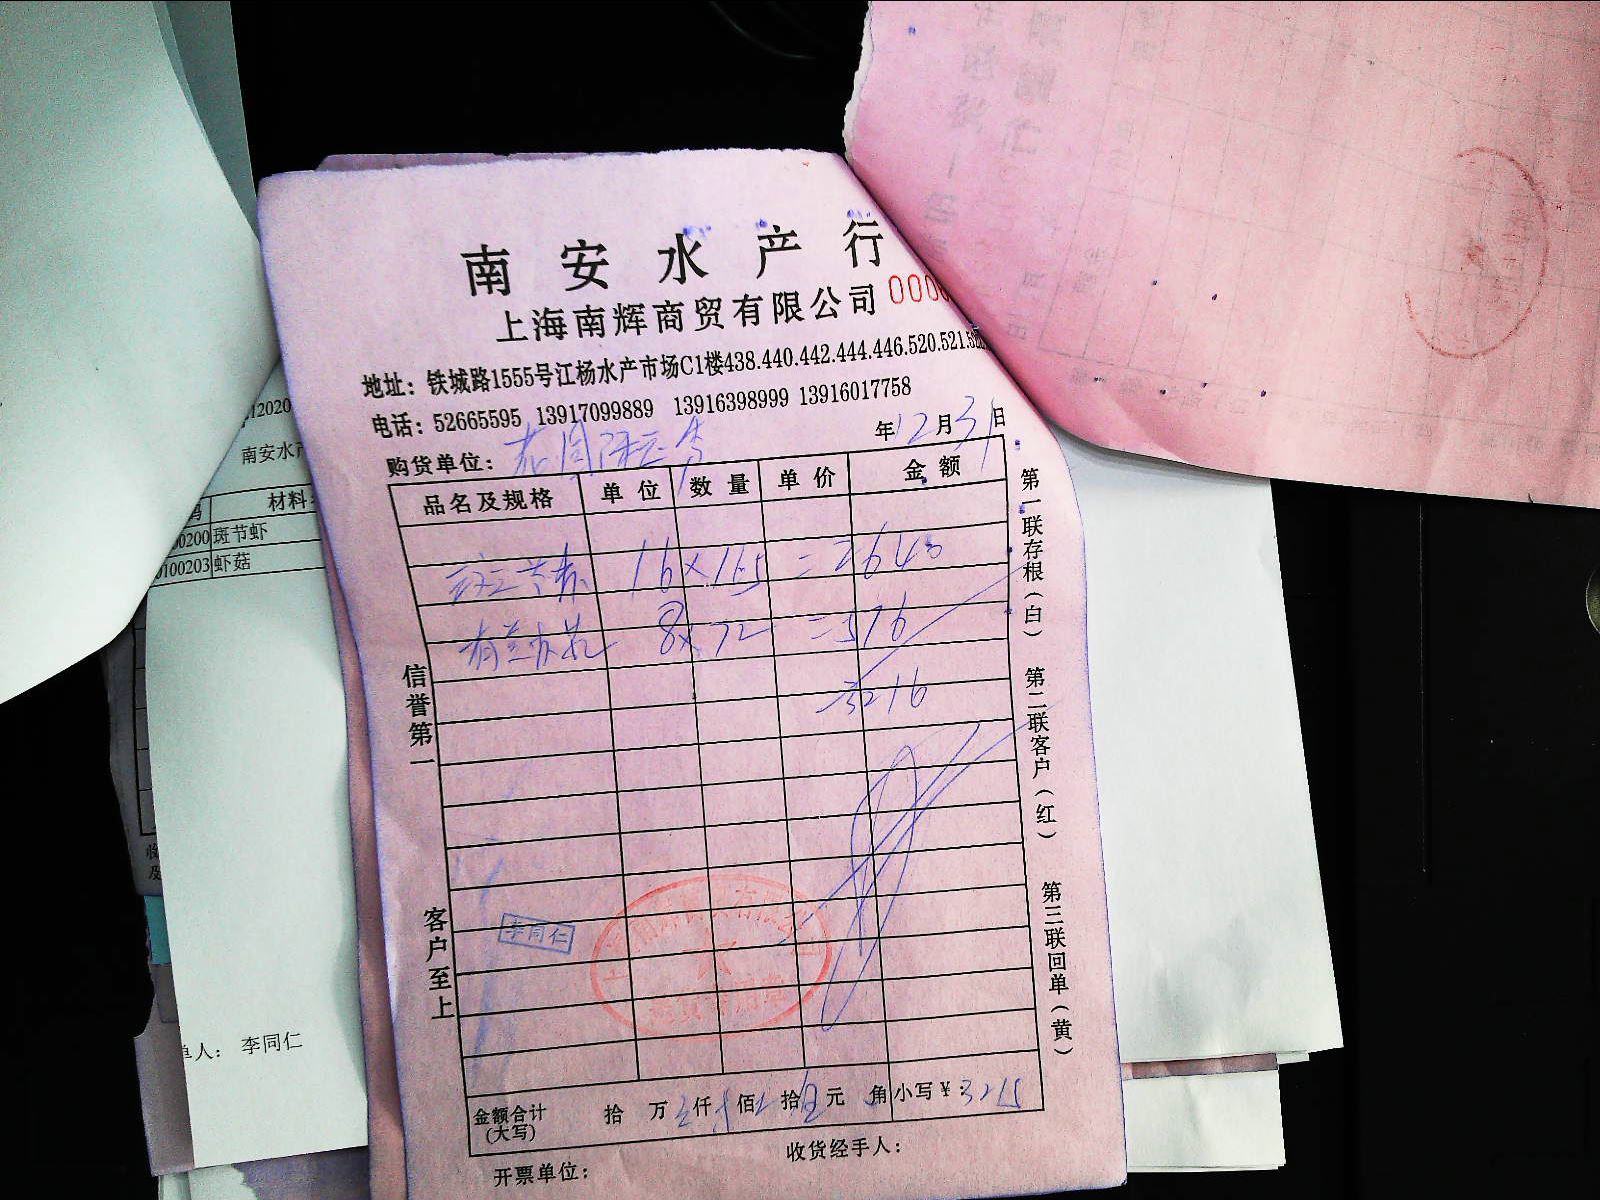 南安水产行
上海南辉商贸有限公司 000
地址：铁城路1555号江杨水产市场C1楼438.440.442.444.446.520.521.5
电话：52665595 13917099889 13916398999 13916017758
年12月31日
购货单位：
品名及规格 单位 数量 单价 金额
16×165 = 2640
8×72 = 576
3216
信誉第一
客户至上
李同仁
金额合计(大写) 拾 万 仟 佰 拾 元 角 小写￥：3215
开票单位：
收货经手人：
第一联存根（白）
第二联客户（红）
第三联回单（黄）
12020
南安水产
材料
00200 斑节虾
0100203 虾菇
单人： 李同仁